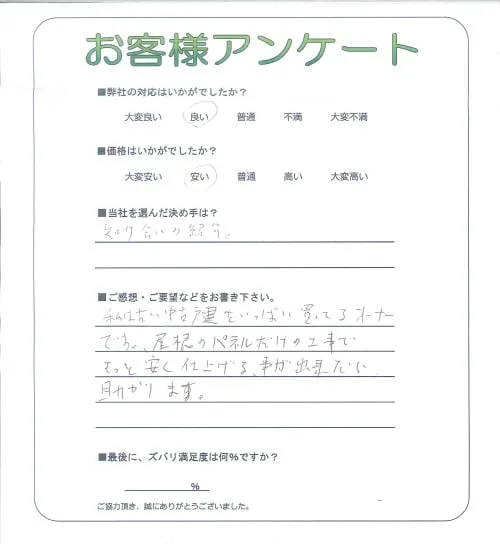 お客様アンケート
■弊社の対応はいかがでしたか?
大変良い 良い 普通 不満 大変不満
■価格はいかがでしたか?
大変安い 安い 普通 高い 大変高い
■当社を選んだ決め手は?
知り合いの紹介。
■ご感想・ご要望などをお書き下さい。
私は古い中古建をいっぱい買ってるオーナー
です。屋根のパネルだけの工事で
もっと安く仕上げる事が出来
助かります。
■最後に、ズバリ満足度は何%ですか?
%
ご協力頂き、誠にありがとうございました。